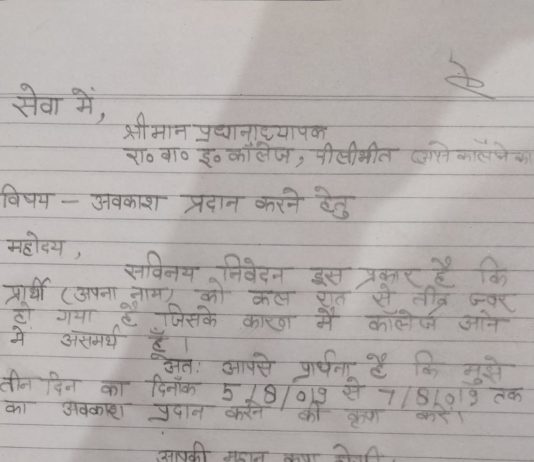 सेवा में,
श्रीमान प्रधानाध्यापक
रा० बा० इ० कॉलेज, पीलीभीत
विषय – अवकाश प्रदान करने हेतु
महोदय,
सविनय निवेदन इस प्रकार है कि
प्रार्थी (अपना नाम) को कल रात से तीव्र ज्वर
हो गया है जिसके कारण मैं कॉलेज आने
में असमर्थ हूँ।
अतः आपसे प्रार्थना है कि मुझे
तीन दिन का दिनाँक 5/8/019 से 7/8/019 तक
का अवकाश प्रदान करने की कृपा करें।
आपकी महान कृपा होगी